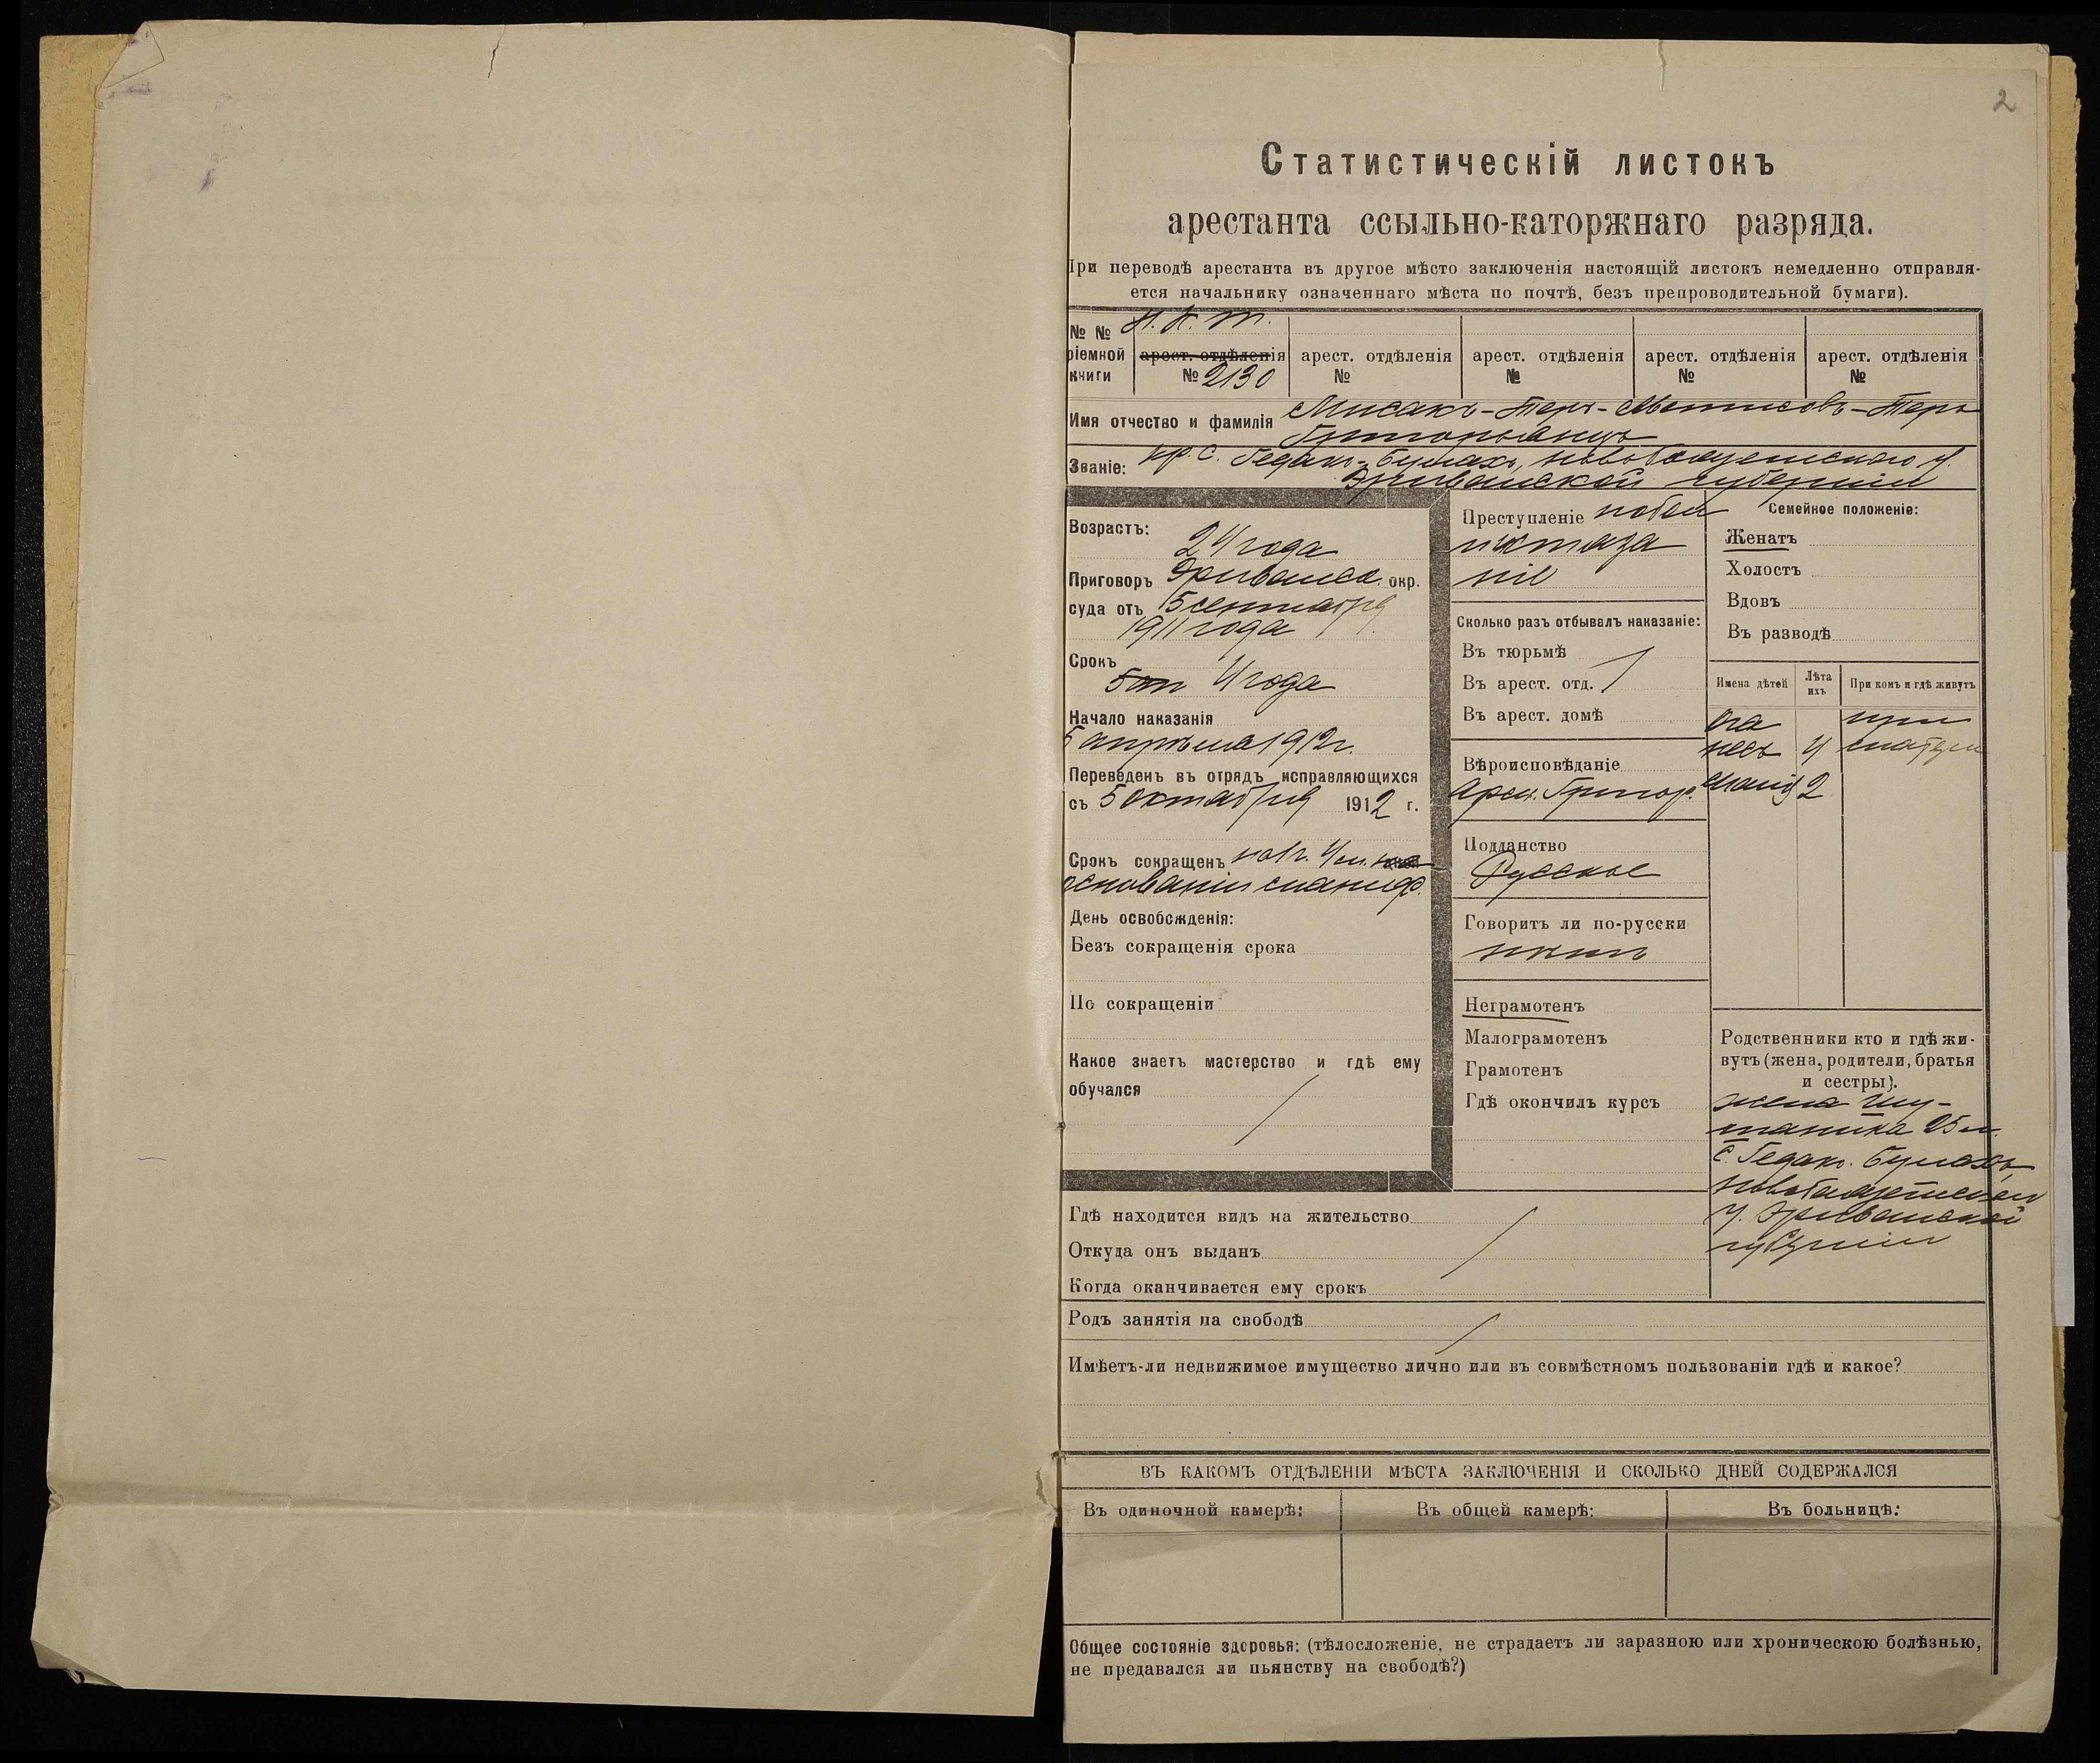 2
Статистическій листокъ
арестанта ссыльно-каторжнаго разряда.
При переводѣ арестанта въ другое мѣсто заключенія настоящій листокъ немедленно отправля-
ется начальнику означеннаго мѣста по почтѣ, безъ препроводительной бумаги).
№ №
ріемной
книги
Н. К. Т.
арест. отдѣленія
№ 2130
арест. отдѣленія
№
арест. отдѣленія
№
арест. отдѣленія
№
арест. отдѣленія
№
Имя отчество и фамилія Мисакъ-Теръ- -Теръ
Григорьянцъ
Званіе: кр. с. Гедакъ-Булахъ, новобаязетскаго у.
Эриванской губерніи
Возрастъ:
24 года
Приговоръ Эриванск. окр.
суда отъ 15 сентября
1911 года
Срокъ
4 года
Начало наказанія
5 апрѣля 1912 г.
Переведенъ въ отрядъ исправляющихся
съ 5 октября 1912 г.
Срокъ сокращенъ на 1 г. 4 м. на
основаніи маниф.
День освобожденія:
Безъ сокращенія срока
По сокращеніи
Какое знаетъ мастерство и гдѣ ему
обучался
Преступленіе побои
истяза
ніе
Сколько разъ отбывалъ наказаніе:
Въ тюрьмѣ
Въ арест. отд.
Въ арест. домѣ
Вѣроисповѣданіе
Арм. Григор.
Подданство
Русское
Говоритъ ли по-русски
нѣтъ
Неграмотенъ
Малограмотенъ
Грамотенъ
Гдѣ окончилъ курсъ
Семейное положеніе:
Женатъ
Холостъ
Вдовъ
Въ разводѣ
Имена дѣтей
Лѣта
ихъ
При комъ и гдѣ живутъ
Ога при
несъ 4 матери
2
Родственники кто и гдѣ жи-
вутъ (жена, родители, братья
и сестры).
жена Шу-
шаника 25 л.
с. Гедакъ. Булахъ,
новобаязетской
у. Эриванской
губерніи
Гдѣ находится видъ на жительство
Откуда онъ выданъ
Когда оканчивается ему срокъ
Родъ занятія на свободѣ
Имѣетъ-ли недвижимое имущество лично или въ совмѣстномъ пользованіи гдѣ и какое?
ВЪ КАКОМЪ ОТДѢЛЕНІИ МѢСТА ЗАКЛЮЧЕНІЯ И СКОЛЬКО ДНЕЙ СОДЕРЖАЛСЯ
Въ одиночной камерѣ:
Въ общей камерѣ:
Въ больницѣ:
Общее состояніе здоровья: (тѣлосложеніе, не страдаетъ ли заразною или хроническою болѣзнью,
не предавался ли пьянству на свободѣ?)